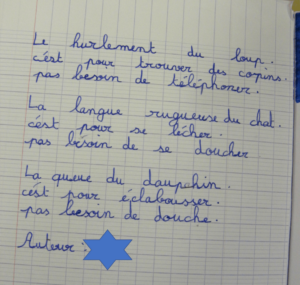 Le hurlement du loup.
c'est pour trouver des copins.
pas besoin de téléphoner.
La langue rugueuse du chat.
c'est pour se lécher.
pas bésoin de se doucher
La queue du daupchin.
c'est pour éclabousser.
pas besoin de douche.
Auteur :